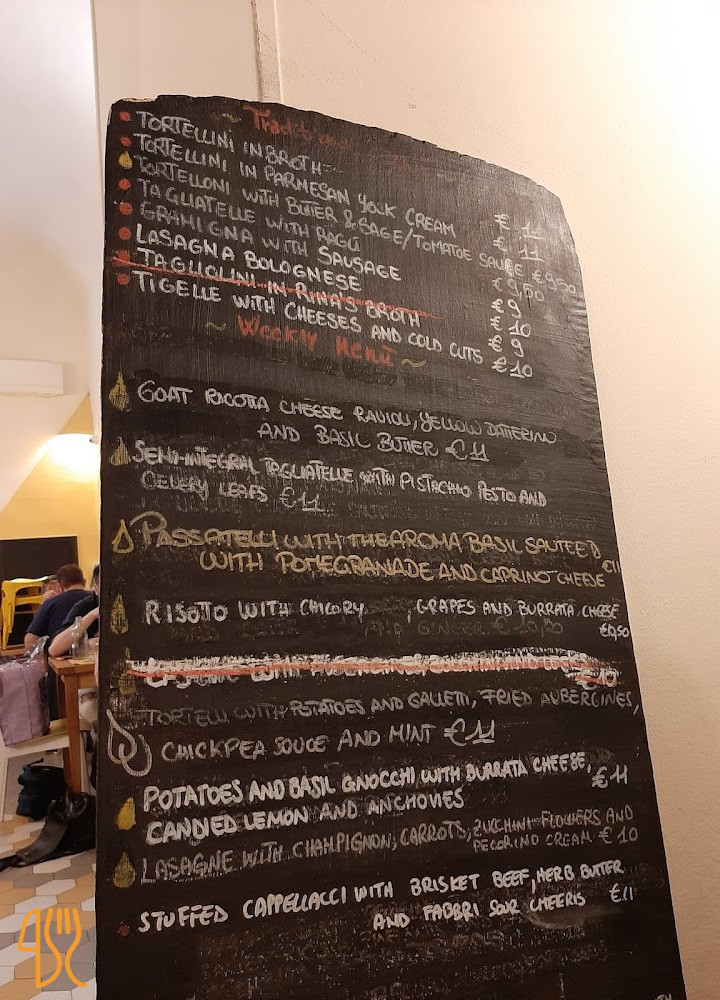 ~ Traditional
TORTELLINI IN BROTH € 11
TORTELLINI IN PARMESAN YOLK CREAM € 11
TORTELLONI WITH BUTTER & SAGE/TOMATOE SAUCE €9,50
TAGLIATELLE WITH RAGÙ €9,50
GRAMIGNA WITH SAUSAGE € 9
LASAGNA BOLOGNESE € 10
TAGLIOLINI IN RINA'S BROTH € 9
TIGELLE WITH CHEESES AND COLD CUTS € 10
~ Weekly Menù ~
GOAT RICOTTA CHEESE RAVIOLI, YELLOW DATTERINO
AND BASIL BUTTER €11
SEMI-INTEGRAL TAGLIATELLE WITH PISTACHIO PESTO AND
CELERY LEAFS €11
PASSATELLI WITH THE AROMA BASIL SAUTEED
WITH POMEGRANADE AND CAPRINO CHEESE €11
RISOTTO WITH CHICORY, GRAPES AND BURRATA CHEESE
€10,50
TORTELLI WITH POTATOES AND GALLETTI, FRIED AUBERGINES,
CHICKPEA SOUCE AND MINT €11
POTATOES AND BASIL GNOCCHI, WITH BURRATA CHEESE,
CANDIED LEMON AND ANCHOVIES €11
LASAGNE WITH CHAMPIGNON, CARROTS, ZUCCHINI FLOWERS AND
PECORINO CREAM € 10
STUFFED CAPPELLACCI WITH BRISKET BEEF, HERB BUTTER
AND FABBRI SOUR CHERRIS €11